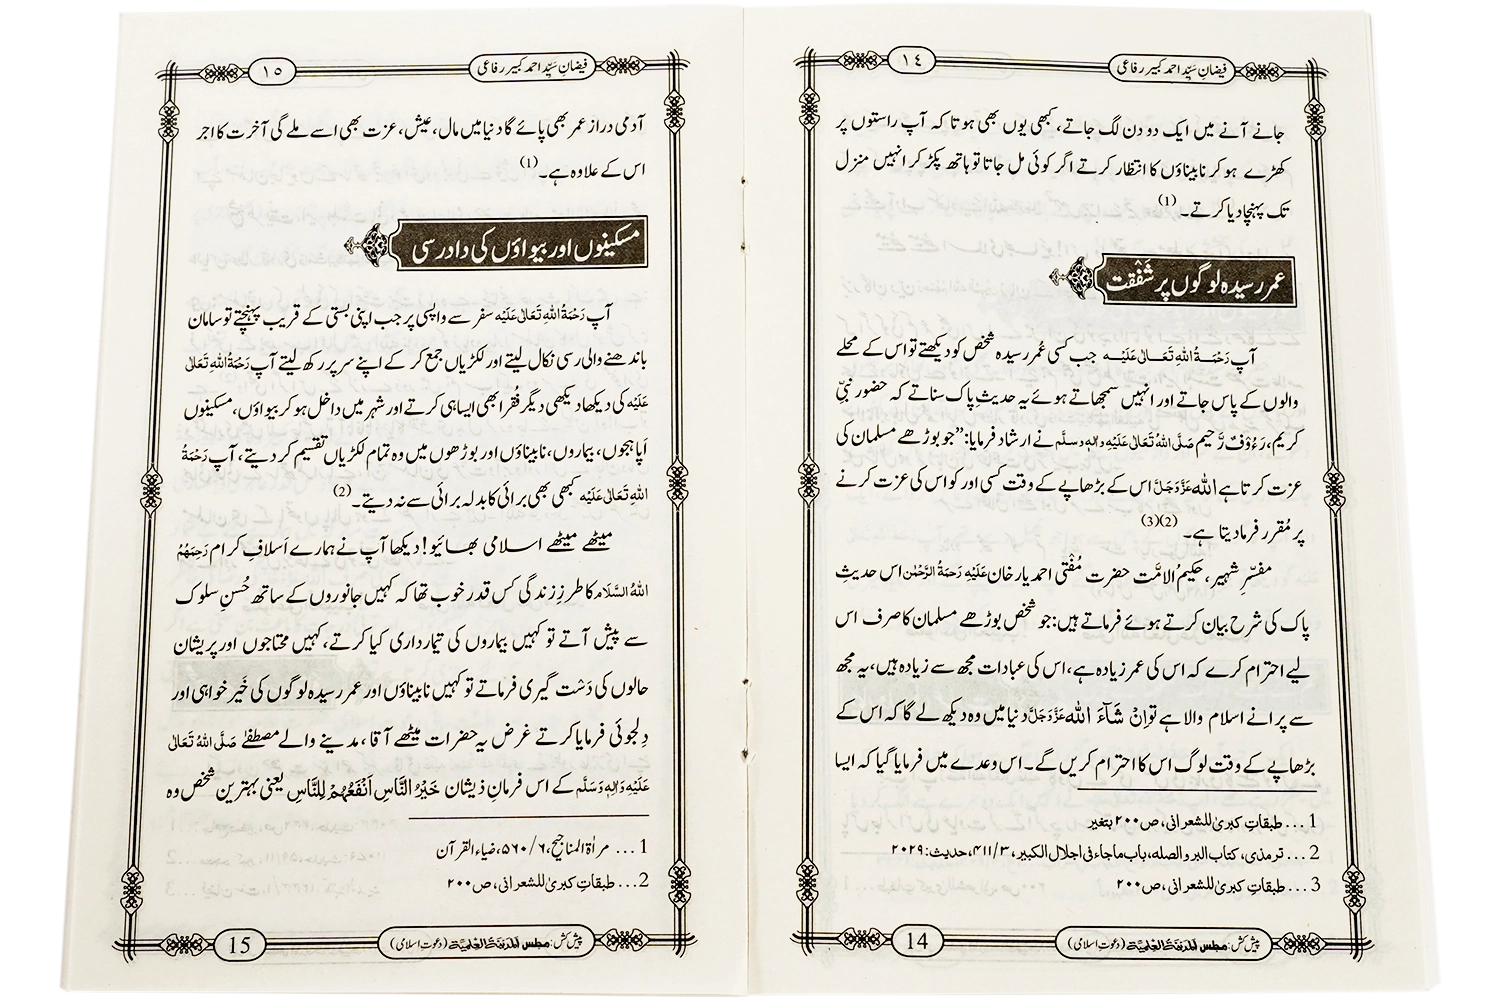 فیضانِ سیّد احمد کبیر رفاعی
١٤
جانے آنے میں ایک دو دن لگ جاتے، کبھی یوں بھی ہوتا کہ آپ راستوں پر
کھڑے ہو کر نابیناؤں کا انتظار کرتے اگر کوئی مل جاتا تو ہاتھ پکڑ کر انہیں منزل
تک پہنچا دیا کرتے۔ (1)
عمر رسیدہ لوگوں پر شفقت
آپ رَحْمَۃُ اللہِ تَعَالٰی عَلَیْہ جب کسی عُمر رسیدہ شخص کو دیکھتے تو اس کے محلے
والوں کے پاس جاتے اور انہیں سمجھاتے ہوئے یہ حدیث پاک سناتے کہ حضور نبیِّ
کریم، رَءُوْفٌ رَّحیم صَلَّی اللہُ تَعَالٰی عَلَیْہِ واٰلہٖ وسلَّم نے ارشاد فرمایا: ”جو بوڑھے مسلمان کی
عزت کرتا ہے اللہ عَزَّ وَجَلَّ اس کے بڑھاپے کے وقت کسی اور کو اس کی عزت کرنے
پر مُقرر فرما دیتا ہے۔ (2)(3)
مفسّرِ شہیر، حکیمُ الامَّت حضرت مُفْتی احمد یار خان عَلَیْہِ رَحمَۃُ الرَّحْمٰن اس حدیث
پاک کی شرح بیان کرتے ہوئے فرماتے ہیں: جو شخص بوڑھے مسلمان کا صرف اس
لیے احترام کرے کہ اس کی عمر زیادہ ہے، اس کی عبادات مجھ سے زیادہ ہیں، یہ مجھ
سے پرانے اسلام والا ہے تو اِنْ شَآءَ اللہ عَزَّ وَجَلَّ دنیا میں وہ دیکھ لے گا کہ اس کے
بڑھاپے کے وقت لوگ اس کا احترام کریں گے۔ اس وعدے میں فرمایا گیا کہ ایسا
1 ... طبقاتِ کبریٰ للشعرانی، ص ۲۰۰ بتغیر
2 ... ترمذی، کتاب البر والصلہ، باب ماجاء فی اجلال الکبیر، ۳/۴۱۱، حدیث: ۲۰۲۹
3 ... طبقاتِ کبریٰ للشعرانی، ص ۲۰۰
پیش کش: مجلس المدینۃ العلمیۃ (دعوتِ اسلامی)
14
فیضانِ سیّد احمد کبیر رفاعی
١٥
آدمی دراز عمر بھی پائے گا دنیا میں مال، عیش، عزت بھی اسے ملے گی آخرت کا اجر
اس کے علاوہ ہے۔ (1)
مسکینوں اور بیواؤں کی دادرسی
آپ رَحْمَۃُ اللہِ تَعَالٰی عَلَیْہ سفر سے واپسی پر جب اپنی بستی کے قریب پہنچتے تو سامان
باندھنے والی رسی نکال لیتے اور لکڑیاں جمع کر کے اپنے سر پر رکھ لیتے آپ رَحْمَۃُ اللہِ تَعَالٰی
عَلَیْہ کی دیکھا دیکھی دیگر فُقرا بھی ایسا ہی کرتے اور شہر میں داخل ہو کر بیواؤں، مسکینوں
اَپاہجوں، بیماروں، نابیناؤں اور بوڑھوں میں وہ تمام لکڑیاں تقسیم کر دیتے، آپ رَحْمَۃُ
اللہِ تَعَالٰی عَلَیْہ کبھی بھی برائی کا بدلہ برائی سے نہ دیتے۔ (2)
میٹھے میٹھے اسلامی بھائیو! دیکھا آپ نے ہمارے اَسلافِ کرام رَحِمَہُمُ
اللہُ السَّلَام کا طرزِ زندگی کس قدر خوب تھا کہ کہیں جانوروں کے ساتھ حُسنِ سلوک
سے پیش آتے تو کہیں بیماروں کی تیمارداری کیا کرتے، کہیں محتاجوں اور پریشان
حالوں کی دَست گیری فرماتے تو کہیں نابیناؤں اور عمر رسیدہ لوگوں کی خَیر خواہی اور
دِلجوئی فرمایا کرتے غرض یہ حضرات میٹھے آقا، مدینے والے مصطفیٰ صَلَّی اللہُ تَعَالٰی
عَلَیْہِ وَاٰلِہٖ وَسَلَّم کے اس فرمانِ ذیشان خَیْرُ النَّاسِ اَنْفَعُہُمْ لِلنَّاسِ یعنی بہترین شخص وہ
1 ... مراٰۃ المناجیح، ۶/۵۶۰، ضیاء القرآن
2 ... طبقاتِ کبریٰ للشعرانی، ص ۲۰۰
پیش کش: مجلس المدینۃ العلمیۃ (دعوتِ اسلامی)
15